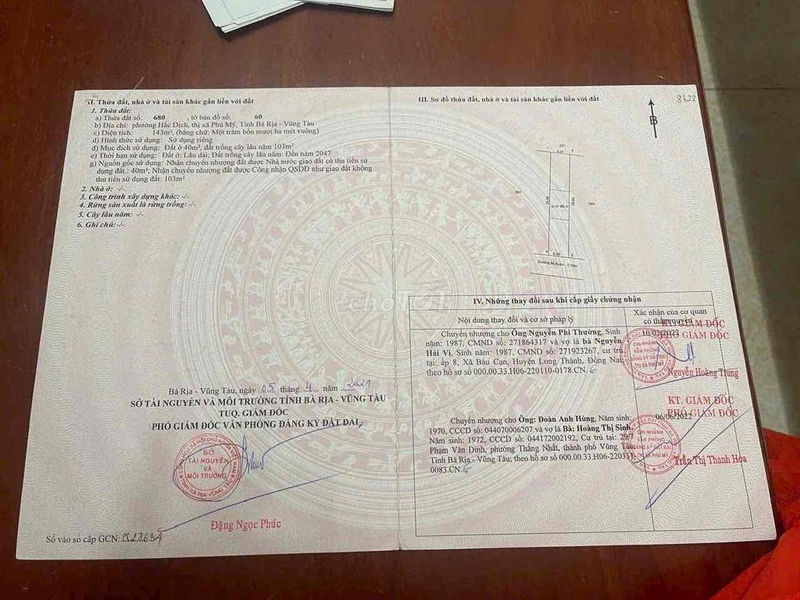 II. Thửa đất, nhà ở và tài sản khác gắn liền với đất
1. Thửa đất:
a) Thửa đất số: 680 , tờ bản đồ số: 60
b) Địa chỉ: phường Hắc Dịch, thị xã Phú Mỹ, Tỉnh Bà Rịa - Vũng Tàu
c) Diện tích: 143m², (bằng chữ: Một trăm bốn mươi ba mét vuông)
d) Hình thức sử dụng: Sử dụng riêng
đ) Mục đích sử dụng: Đất ở 40m², đất trồng cây lâu năm 103m²
e) Thời hạn sử dụng: Đất ở: Lâu dài; Đất trồng cây lâu năm: Đến năm 2047
g) Nguồn gốc sử dụng: Nhận chuyển nhượng đất được Nhà nước giao đất có thu tiền sử
dụng đất.: 40m²; Nhận chuyển nhượng đất được Công nhận QSDĐ như giao đất không
thu tiền sử dụng đất: 103m²
2. Nhà ở: -/-
3. Công trình xây dựng khác: -/-
4. Rừng sản xuất là rừng trồng: -/-
5. Cây lâu năm: -/-
6. Ghi chú: -/-
Bà Rịa - Vũng Tàu, ngày 05 tháng 4 năm 2021
SỞ TÀI NGUYÊN VÀ MÔI TRƯỜNG TỈNH BÀ RỊA - VŨNG TÀU
TUQ. GIÁM ĐỐC
PHÓ GIÁM ĐỐC VĂN PHÒNG ĐĂNG KÝ ĐẤT ĐAI
SỞ
TÀI NGUYÊN
VÀ
MÔI TRƯỜNG
Đặng Ngọc Phúc
Số vào sổ cấp GCN:
III. Sơ đồ thửa đất, nhà ở và tài sản khác gắn liền với đất
B
IV. Những thay đổi sau khi cấp giấy chứng nhận
Nội dung thay đổi và cơ sở pháp lý
Xác nhận của cơ quan
có thẩm quyền
Chuyển nhượng cho Ông Nguyễn Phi Thường, Sinh
năm: 1987, CMND số: 271864317 và vợ là bà Nguyễn
Hải Vi, Sinh năm: 1987, CMND số: 271923267, cư trú
tại: ấp 8, Xã Bàu Cạn, Huyện Long Thành, Đồng Nai;
theo hồ sơ số 000.00.33.H06-220110-0178.CN
KT.GIÁM ĐỐC
PHÓ GIÁM ĐỐC
Nguyễn Hoàng Tùng
Chuyển nhượng cho Ông: Đoàn Anh Hùng, Năm sinh:
1970, CCCD số: 044070006207 và vợ là Bà: Hoàng Thị Sinh,
Năm sinh: 1972, CCCD số: 044172002192, Cư trú tại:
Phạm Văn Dinh, phường Thắng Nhất, thành phố Vũng Tàu,
Tỉnh Bà Rịa - Vũng Tàu, theo hồ sơ số 000.00.33.H06-
0083.CN
KT. GIÁM ĐỐC
PHÓ GIÁM ĐỐC
Trần Thị Thanh Hoa